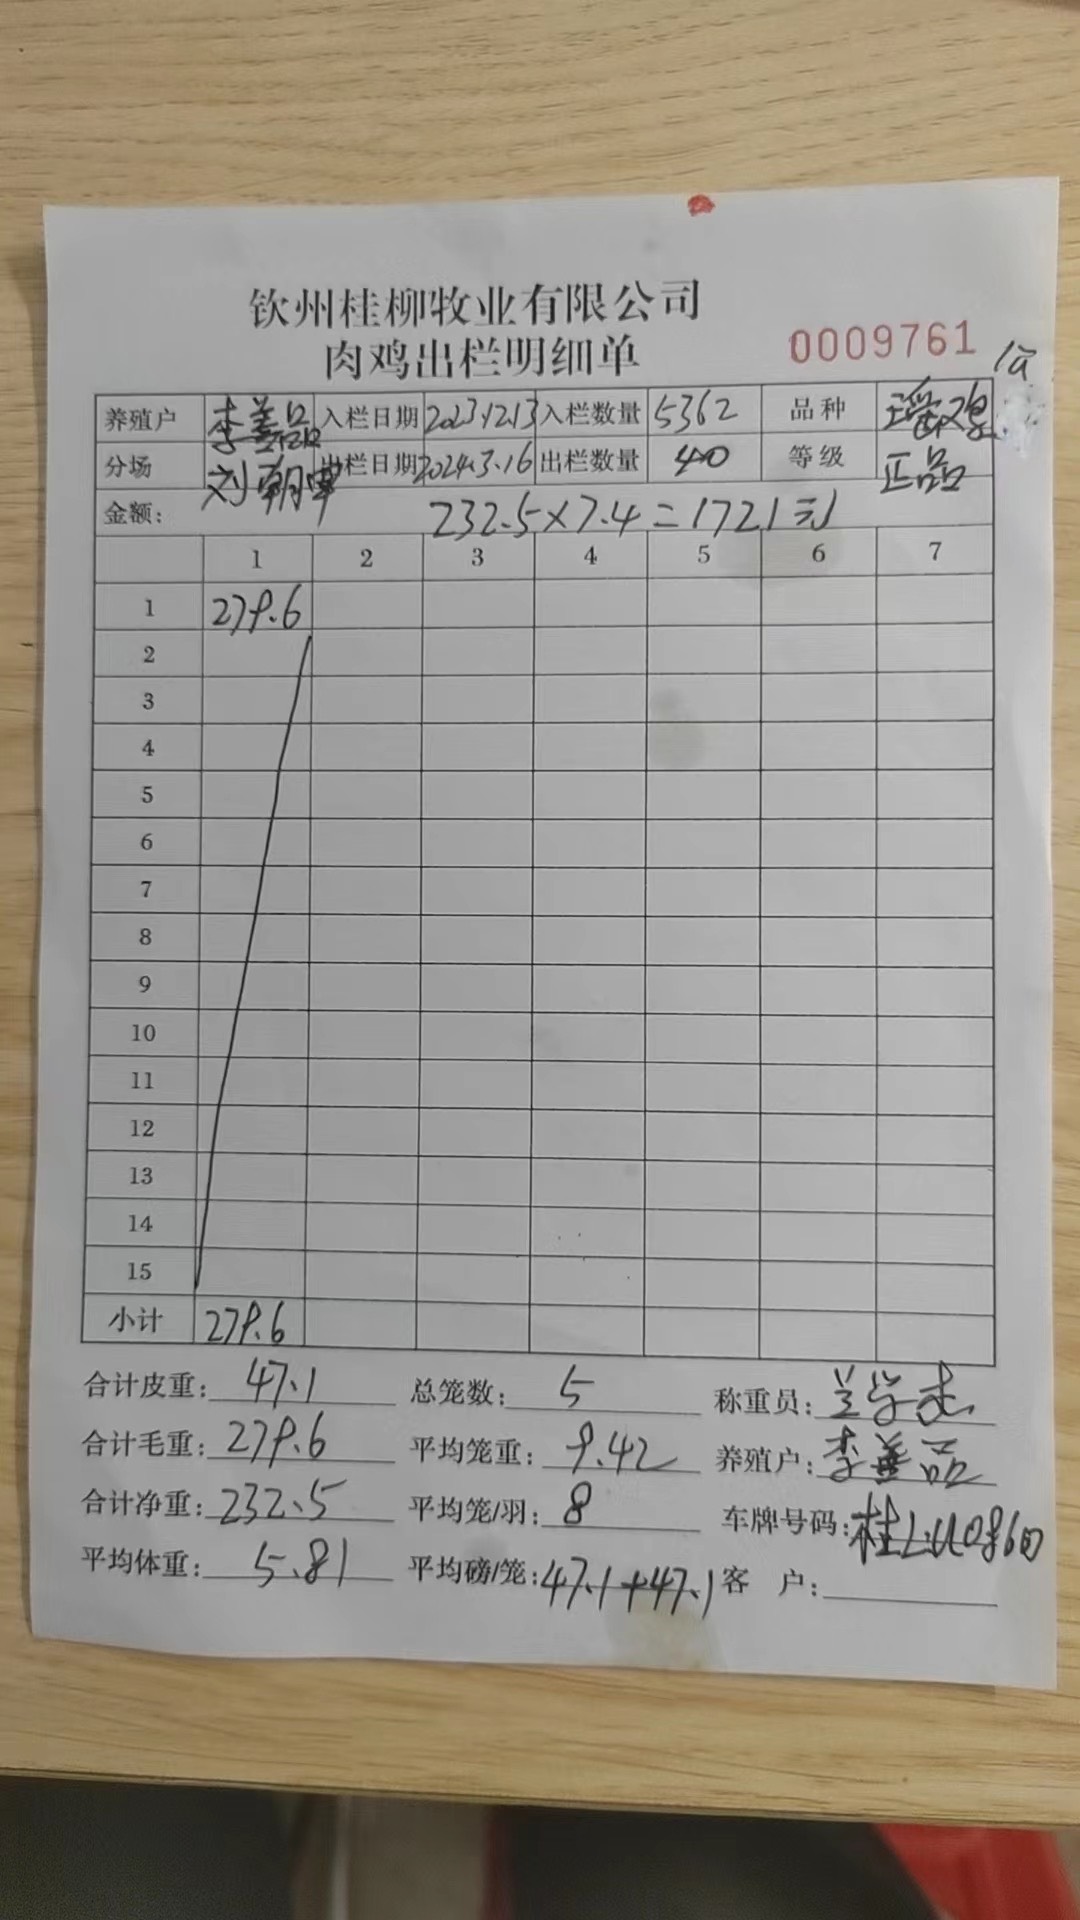 钦州桂柳牧业有限公司
肉鸡出栏明细单
0009761
养殖户 李善品 入栏日期 2023.12.13 入栏数量 5362 品种 瑶鸡
分场 刘朝 出栏日期 2024.3.16 出栏数量 40 等级 正品
金额: 232.5×7.4=1721元
1 2 3 4 5 6 7
1 279.6
2
3
4
5
6
7
8
9
10
11
12
13
14
15
小计 279.6
合计皮重: 47.1 总笼数: 5 称重员: 兰学志
合计毛重: 279.6 平均笼重: 9.42 养殖户: 李善品
合计净重: 232.5 平均笼/羽: 8 车牌号码: 桂
平均体重: 5.81 平均磅/笼: 47.1+47.1 客 户: